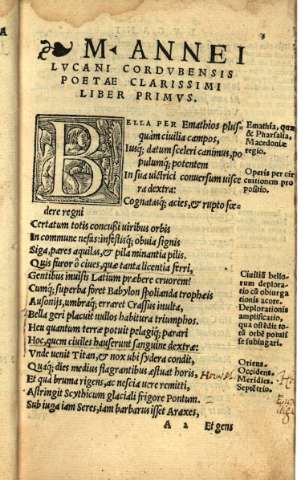 M. ANNEI
LVCANI CORDVBENSIS
POETAE CLARISSIMI
LIBER PRIMVS.
BELLA PER Emathios pluſ-
quàm ciuilia campos,
Iuſq; datum ſceleri canimus, po
pulumq; potentem
In ſua victrici conuerſum viſce
ra dextra:
Cognatasq; acies, & rupto fœ-
dere regni
Certatum totis concuſsi viribus orbis
In commune nefas: infeſtisq; obuia ſignis
Signa, pares aquilas, & pila minantia pilis.
Quis furor ô ciues, quæ tanta licentia ferri,
Gentibus inuiſis Latium præbere cruorem?
Cumq; ſuperba foret Babylon ſpolianda trophæis
Auſonijs, vmbraq; erraret Craſſus inulta,
Bella geri placuit nullos habitura triumphos.
Heu quantum terræ potuit pelagiq; parari
Hoc, quem ciuiles hauſerunt ſanguine dextræ:
Vnde venit Titan, & nox vbi ſydera condit,
Quaq; dies medius flagrantibus æſtuat horis,
Et qua bruma rigens, ac neſcia vere remitti,
Aſtringit Scythicum glaciali frigore Pontum.
Sub iuga iam Seres, iam barbarus iſſet Araxes,
A 2 Et gens
Emathia, quæ
& Pharſalia,
Macedoniæ
regio.
Operis per cir
cuitionem pro
poſitio.
Ciuiliũ bello-
rum deplora-
tio cũ obiurga
tionis acore.
Deplorationis
amplificatio,
qua oſtẽdit to-
tũ orbẽ potuiſ
ſe ſubiugari.
Oriens.
Occidens.
Meridies.
Septẽtrio.